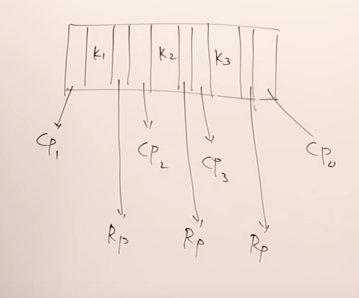 K1 K2 K3
CP1 CP2 CP3 CP4
Rp Rp Rp